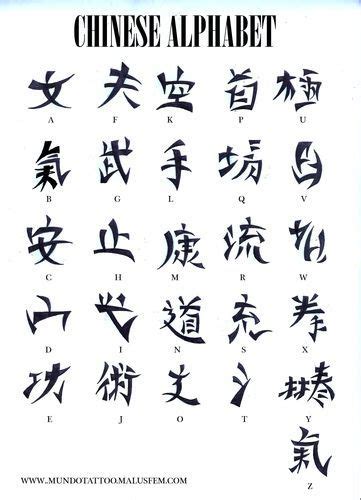 CHINESE ALPHABET
女 夫 空 首 極
A F K P U
氣 武 手 場
B G L Q V
安 止 康 流
C H M R W
山 道 充 拳
D I N S X
功 術
E J O T Y
氣
Z
WWW.MUNDOTATTOO.MALUSFEM.COM